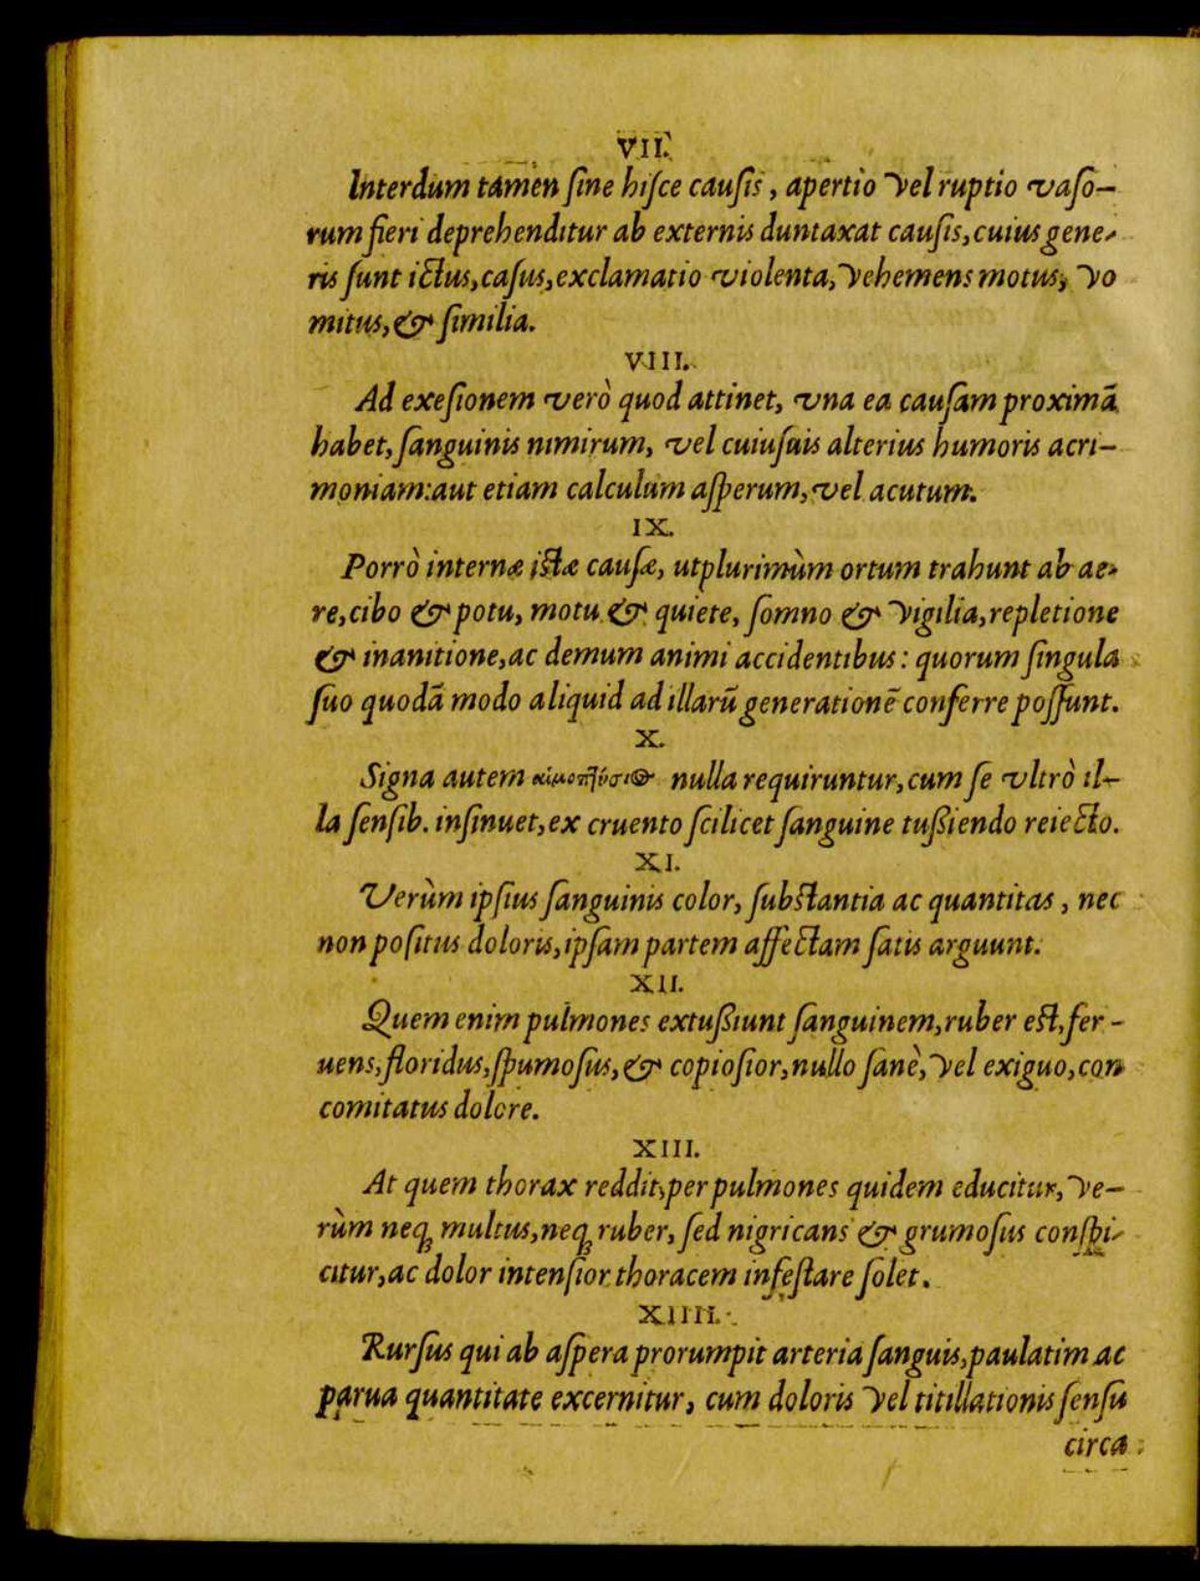 VII.
Interdum tamen ſine hiſce cauſis, apertio vel ruptio vaſo-
rum fieri deprehenditur ab externis duntaxat cauſis, cuius gene-
ris ſunt ictus, caſus, exclamatio violenta, vehemens motus, vo
mitus, & ſimilia.
VIII.
Ad exeſionem verò quod attinet, vna ea cauſam proximã
habet, ſanguinis nimirum, vel cuiuſuis alterius humoris acri-
moniam: aut etiam calculum aſperum, vel acutum.
IX.
Porrò internæ iſtæ cauſæ, utplurimùm ortum trahunt ab ae-
re, cibo & potu, motu & quiete, ſomno & vigilia, repletione
& inanitione, ac demum animi accidentibus: quorum ſingula
ſuo quodã modo aliquid ad illarũ generationẽ conferre poſſunt.
X.
Signa autem αἱμοπτύσιος nulla requiruntur, cum ſe vltrò il-
la ſenſib. inſinuet, ex cruento ſcilicet ſanguine tußiendo reiecto.
XI.
Verùm ipſius ſanguinis color, ſubſtantia ac quantitas, nec
non poſitus doloris, ipſam partem affectam ſatis arguunt.
XII.
Quem enim pulmones extußiunt ſanguinem, ruber eſt, fer-
uens, floridus, ſpumoſus, & copioſior, nullo ſanè, vel exiguo, con
comitatus dolore.
XIII.
At quem thorax reddit, per pulmones quidem educitur, ve-
rùm neq́; multus, neq́; ruber, ſed nigricans & grumoſus conſpi-
citur, ac dolor intenſior thoracem infeſtare ſolet.
XIIII.
Rurſus qui ab aſpera prorumpit arteria ſanguis, paulatim ac
parua quantitate excernitur, cum doloris vel titillationis ſenſu
circa